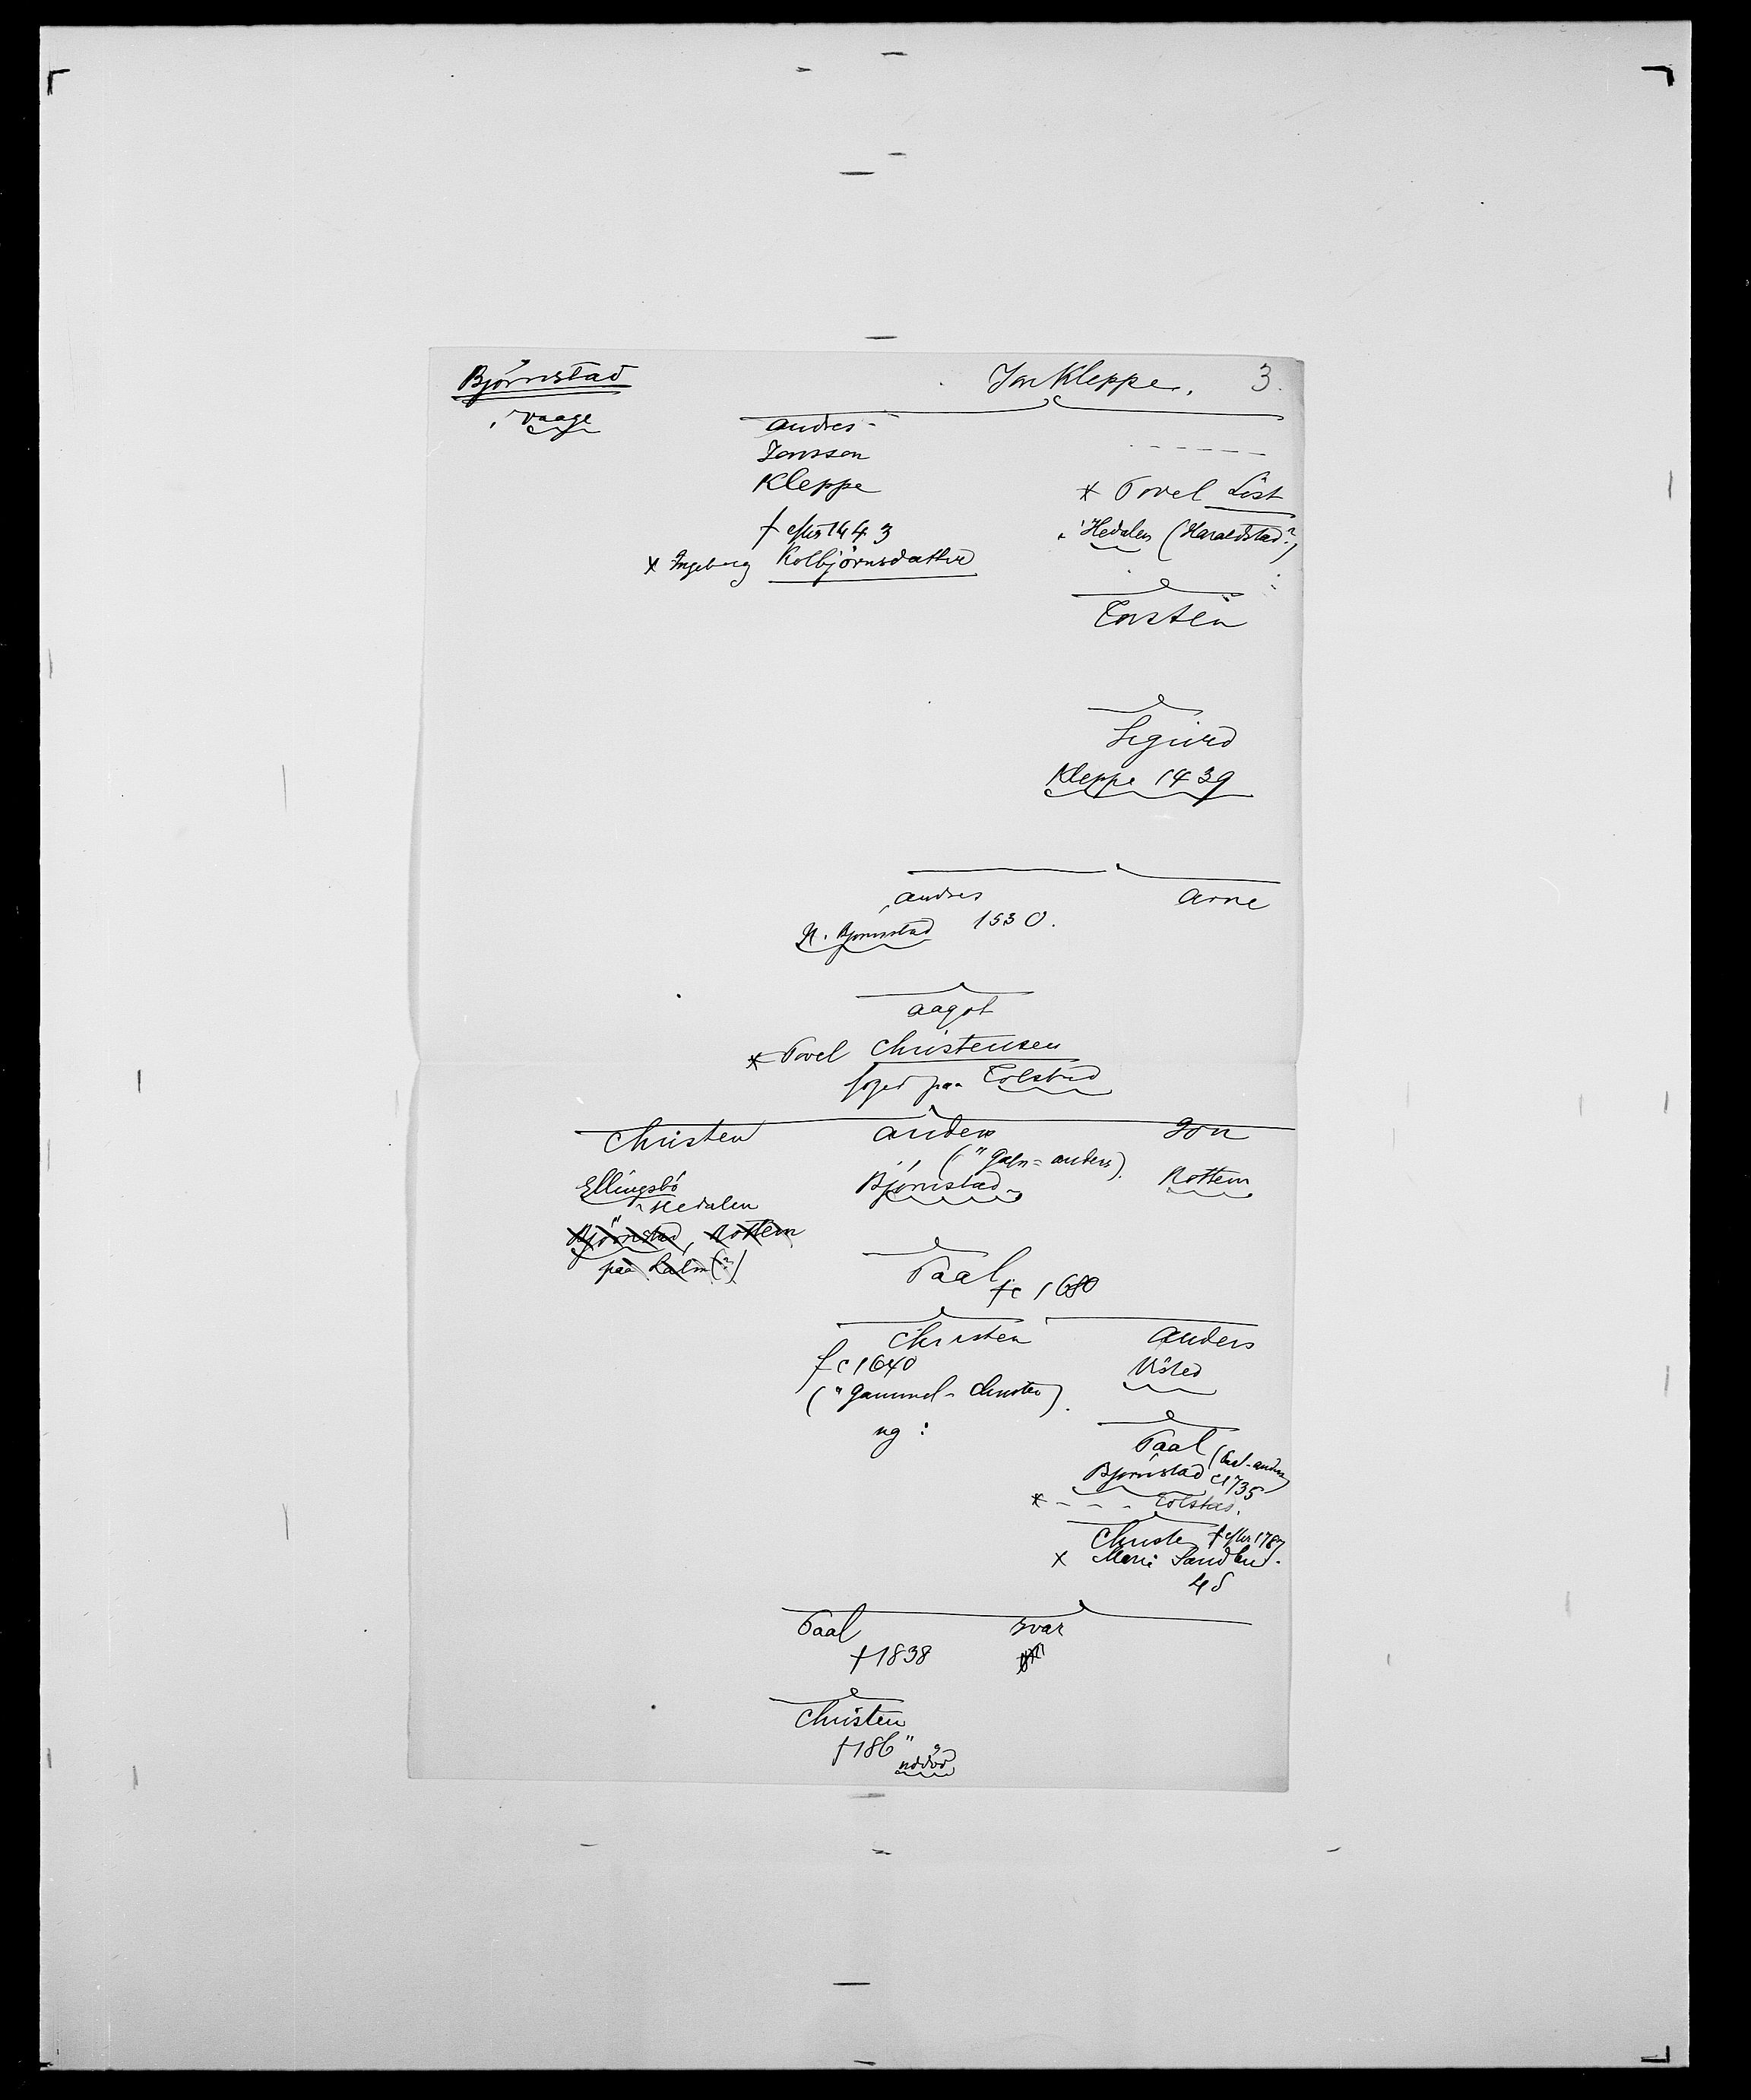 Björnstad
i Vaage
Jon Kleppe. 3.
Andres
Jonsson
Kleppe
† efter 1443
x Ingeborg Kolbjörnsdatter
- - - - -
x Povel List
i Hedalen (Haraldstad?)
Torstein
Sigurd
Kleppe 1439
Andres
N. Bjørnstad 1530.
Arne
Aagot
x Povel Christensen
foged paa Tolstad
Christen
Ellingsbö
i Hedalen
Björnstad, Nottem
paa Lalm (?)
Anders
("Galn-Anders).
Björnstad
Jon
Nottem
Paal
fc 1680
Christen
f c 1640
("Gammel-Christen)
ug:
Anders
Visted
Paal
Bjørnstad c 1735
x - - - Tolstad.
Christen † efter 1787
x Mari Sandbu.
4 S
Paal
† 1838
Ivar
Christen
† 186"